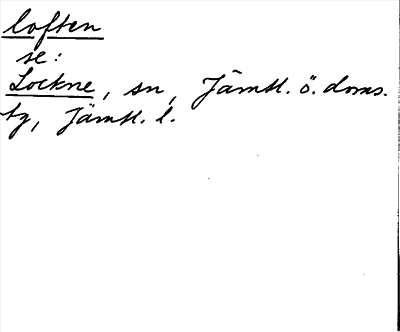 loften
se:
Lockne, sn, Jämtl. ö. doms.
tg, Jämtl. l.